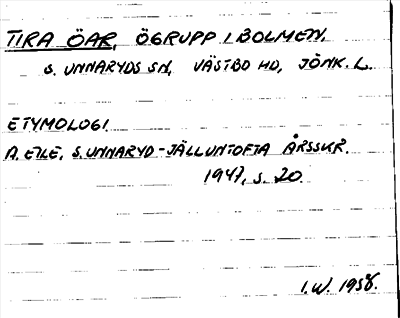 TIRA ÖAR, ÖGRUPP I BOLMEN.
S. UNNARYDS SN, VÄSTBO HD, JÖNK. L.
ETYMOLOGI
A. ETLE, S. UNNARYD-JÄLLUNTOFTA ÅRSSKR.
1947, S. 20.
I.W. 1958.